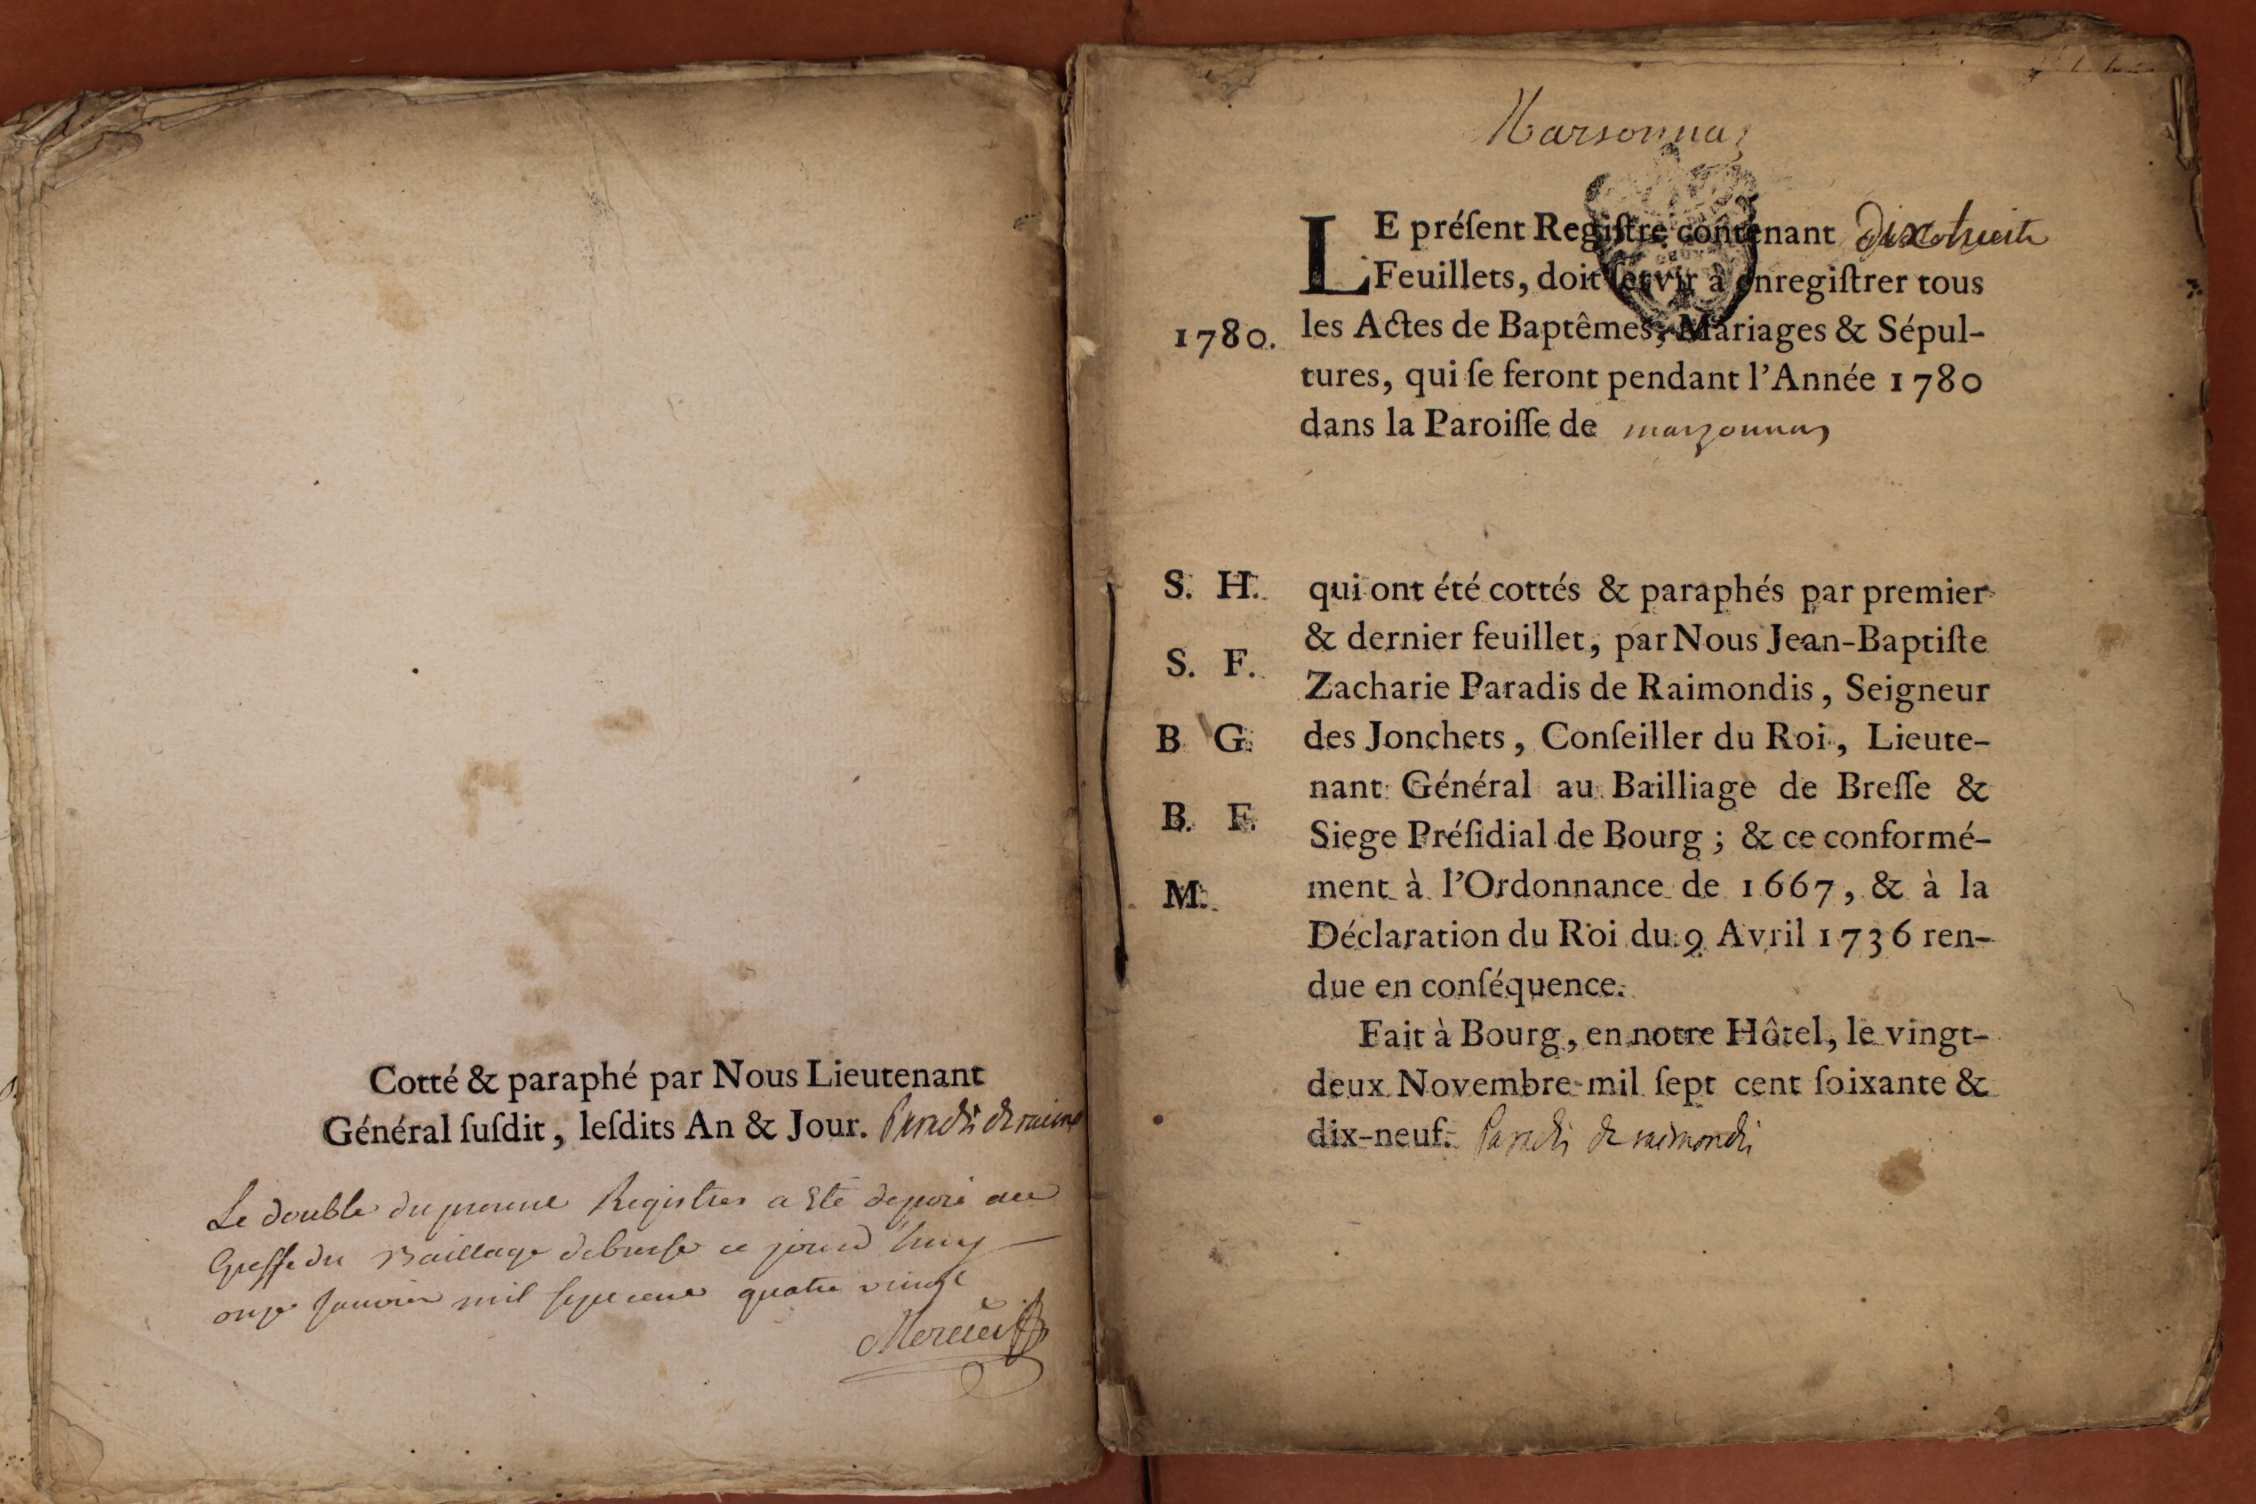 Cotté & paraphé par Nous Lieutenant
Général ſuſdit, leſdits An & Jour. Paradis de raimon
Le double du present Registres a Eté deposé au
Greffe du Baillage de bresse ce jourd'huy
onze Janvier mil sept cent quatre vingt
Mercier
Marsonnas
LE préſent Regiſtre contenant dixhuit
Feuillets, doit ſervir à enregiſtrer tous
1780. les Actes de Baptêmes, Mariages & Sépul-
tures, qui ſe feront pendant l'Année 1780
dans la Paroiſſe de marzonnas
S. H. qui ont été cottés & paraphés par premier
& dernier feuillet, par Nous Jean-Baptiſte
S. F. Zacharie Paradis de Raimondis, Seigneur
B G. des Jonchets, Conſeiller du Roi, Lieute-
nant Général au Bailliage de Breſſe &
B. F. Siege Préſidial de Bourg; & ce conformé-
M. ment à l'Ordonnance de 1667, & à la
Déclaration du Roi du 9 Avril 1736 ren-
due en conſéquence.
Fait à Bourg, en notre Hôtel, le vingt-
deux Novembre mil ſept cent ſoixante &
dix-neuf. Paradis de raimondis